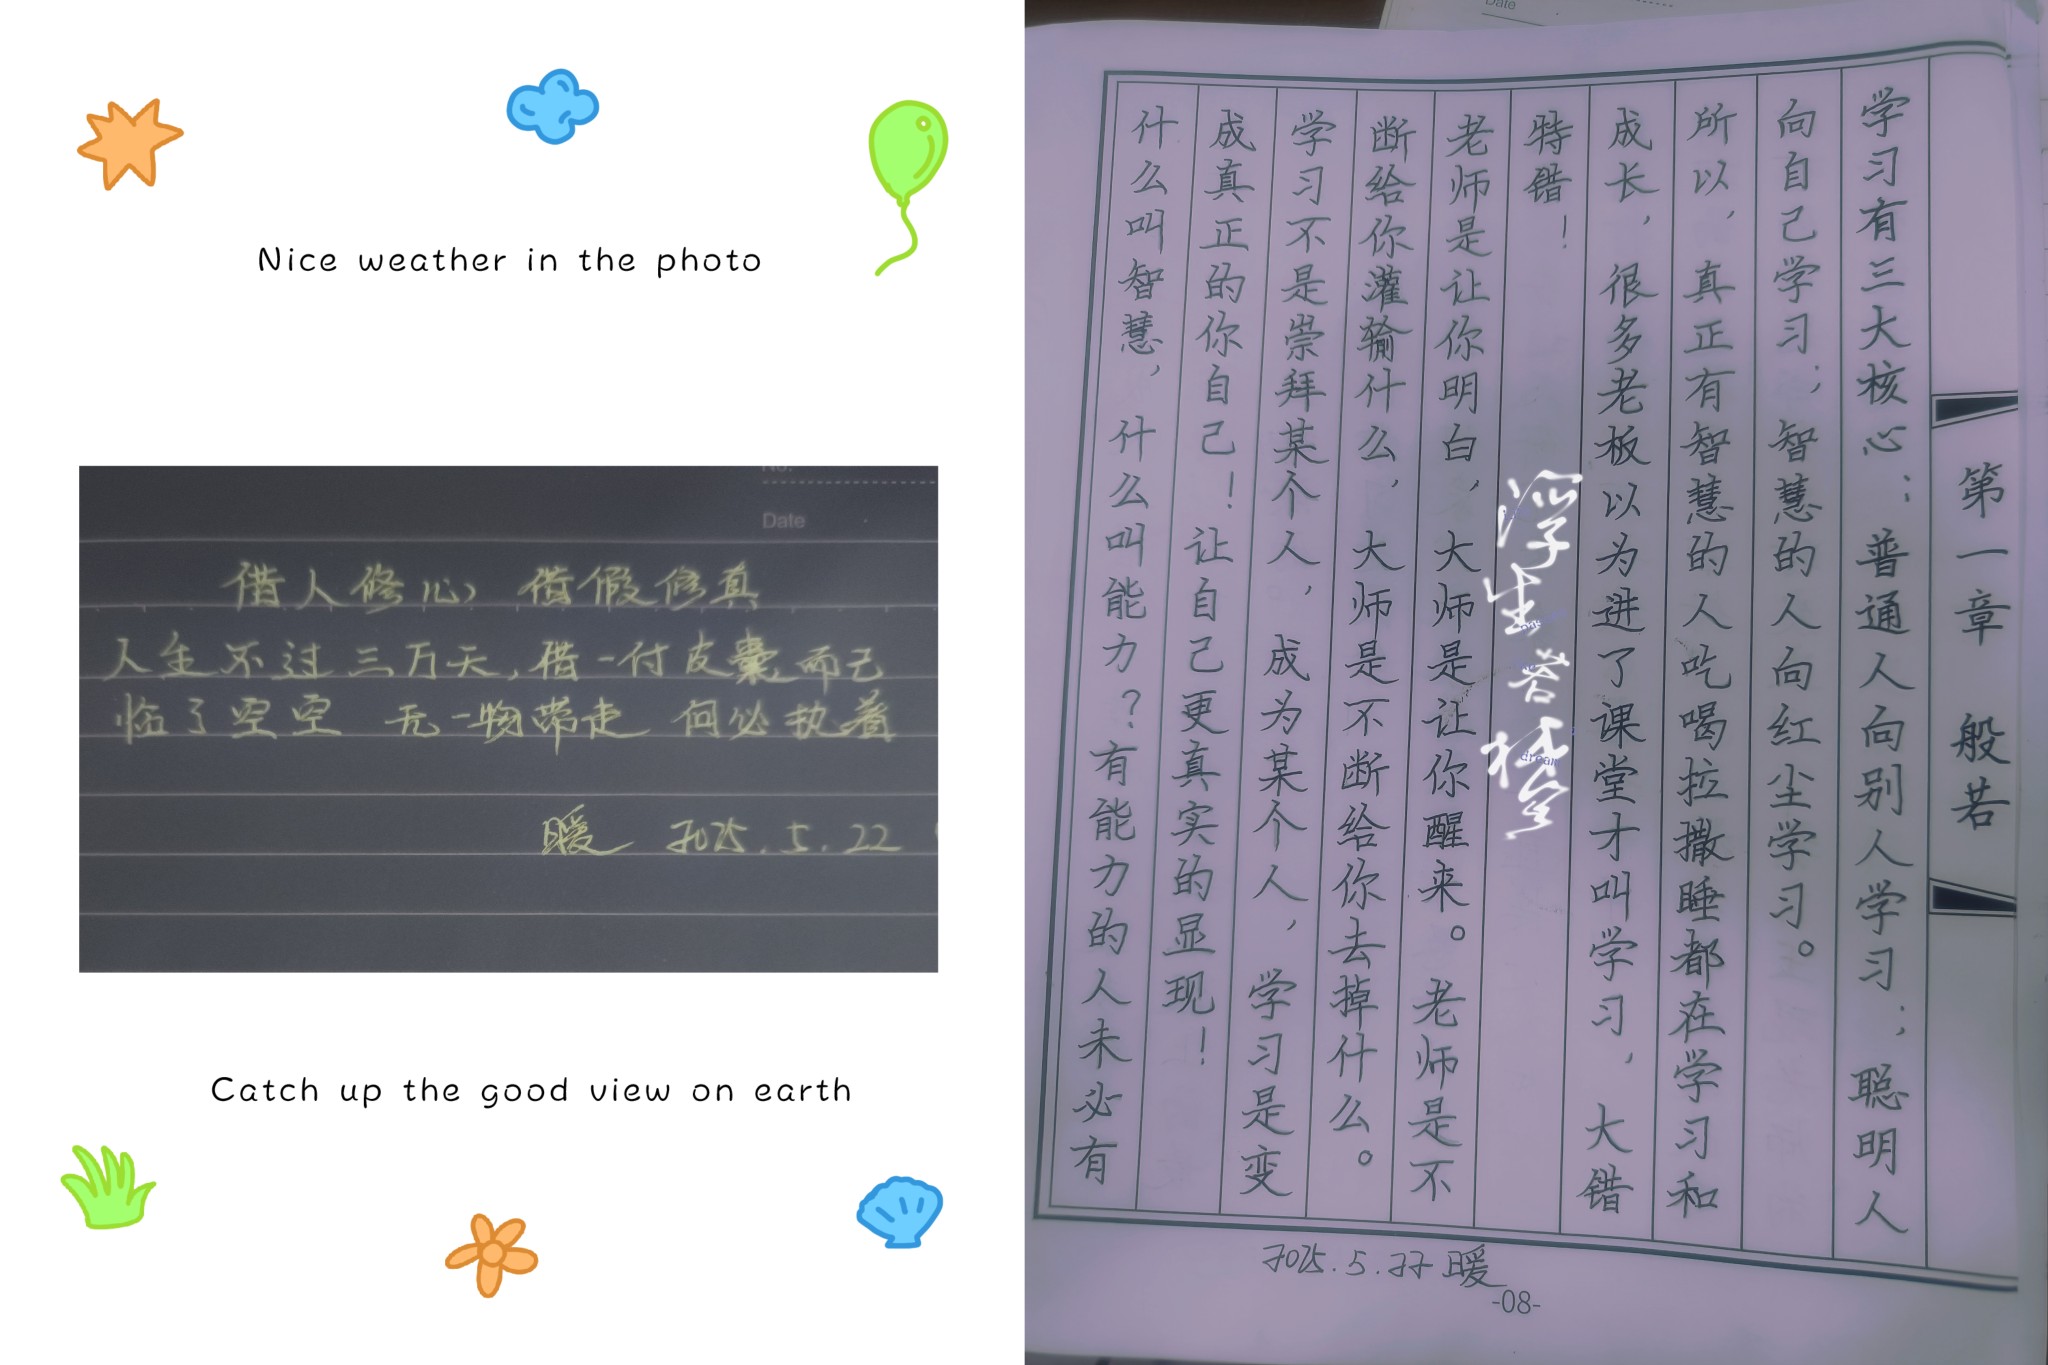 Nice weather in the photo
No.
Date
借人修心 借假修真
人生不过三万天,借一付皮囊而已
临了空空 无一物带走 何必执着
暖 2025.5.22
Catch up the good view on earth
Date
第一章 般若
学习有三大核心:普通人向别人学习;聪明人
向自己学习;智慧的人向红尘学习。
所以,真正有智慧的人吃喝拉撒睡都在学习和
成长,很多老板以为进了课堂才叫学习,大错
特错!
老师是让你明白,大师是让你醒来。老师是不
断给你灌输什么,大师是不断给你去掉什么。
学习不是崇拜某个人,成为某个人,学习是变
成真正的你自己!让自己更真实的显现!
什么叫智慧,什么叫能力?有能力的人未必有
浮生若梦
dream
2025.5.22 暖
-08-